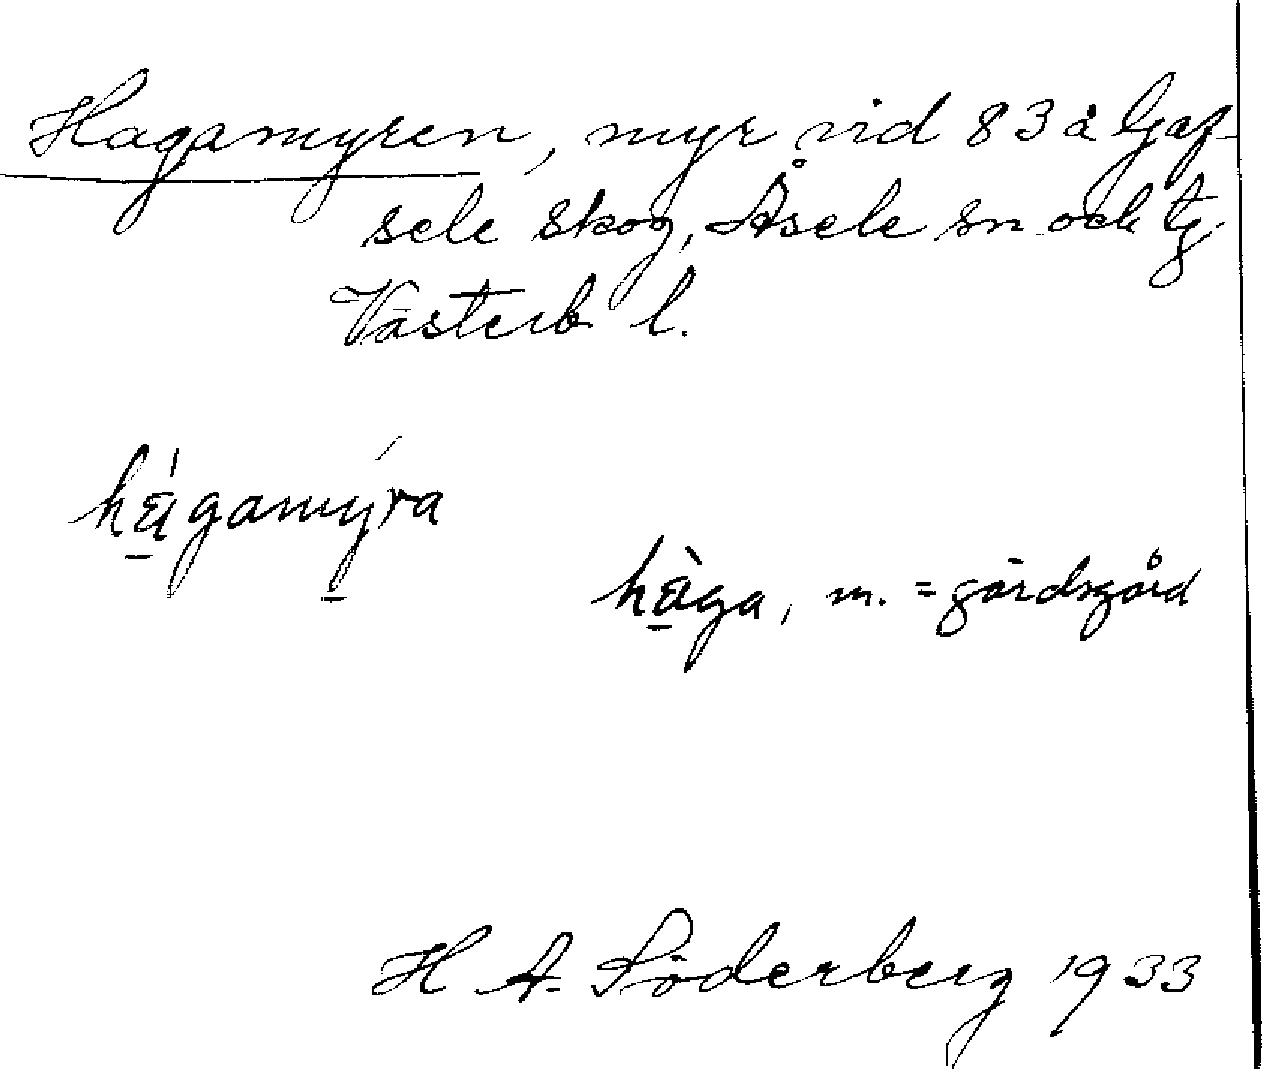 Hagamyren, myr vid 83 å Gaf-
sele skog, Åsele sn och tg
Västerb l.
hágamýra
hàga, m. = gärdsgård
H A. Söderberg 1933